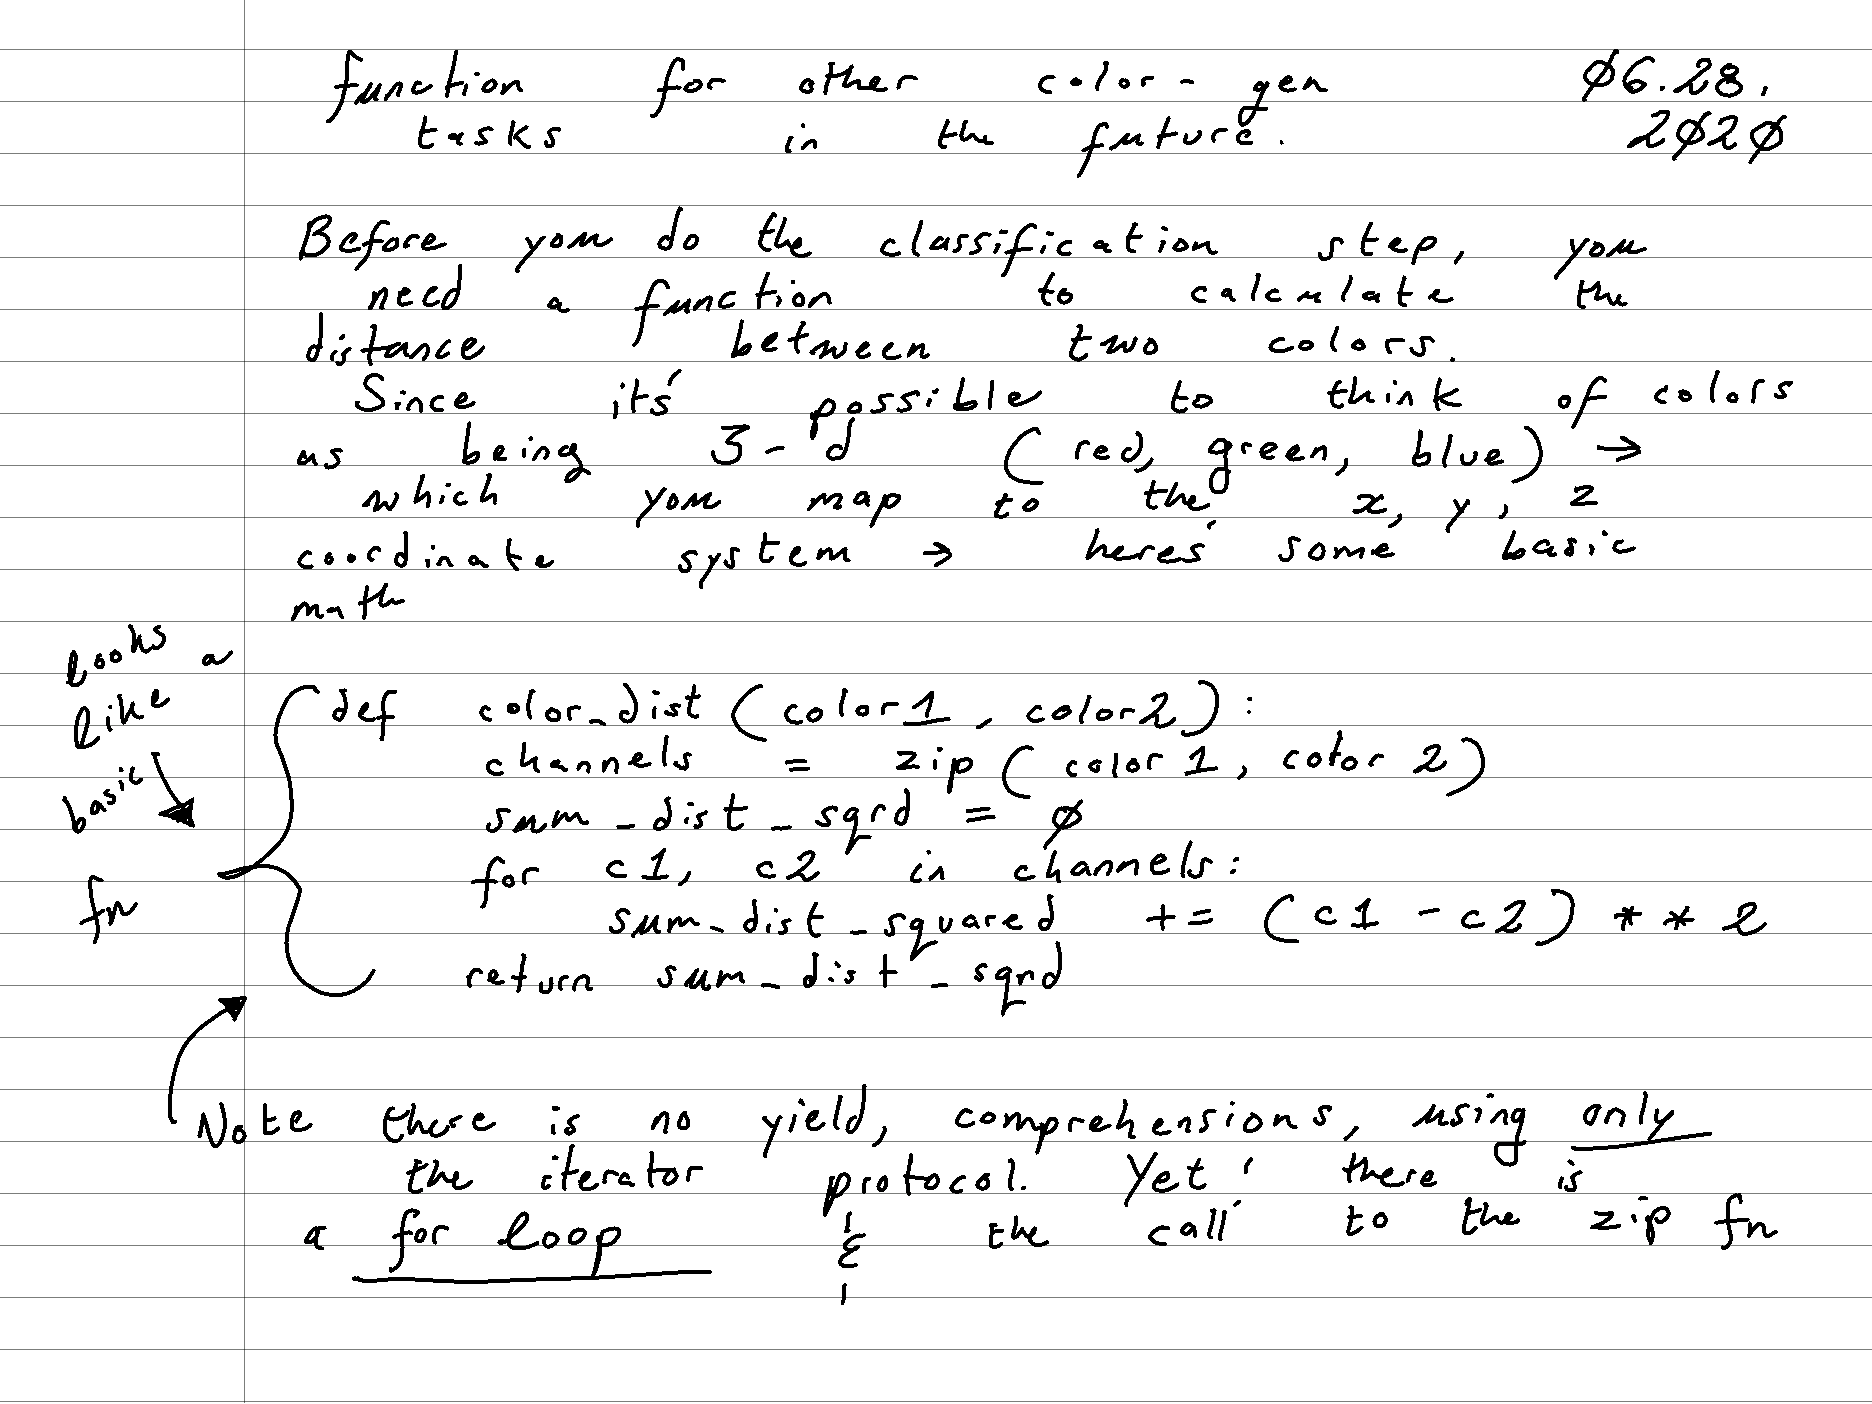 function for other color-gen 06.28.
tasks in the future. 2020
Before you do the classification step, you
need a function to calculate the
distance between two colors.
Since it's possible to think of colors
as being 3-d (red, green, blue) →
which you map to the x, y, z
coordinate system → here's some basic
math
looks a
like
basic
fn
def color_dist (color1, color2):
channels = zip (color1, color2)
sum_dist_sqrd = 0
for c1, c2 in channels:
sum_dist_squared += (c1 - c2) ** 2
return sum_dist_sqrd
Note there is no yield, comprehensions, using only
the iterator protocol. Yet, there is
a for loop & the call to the zip fn